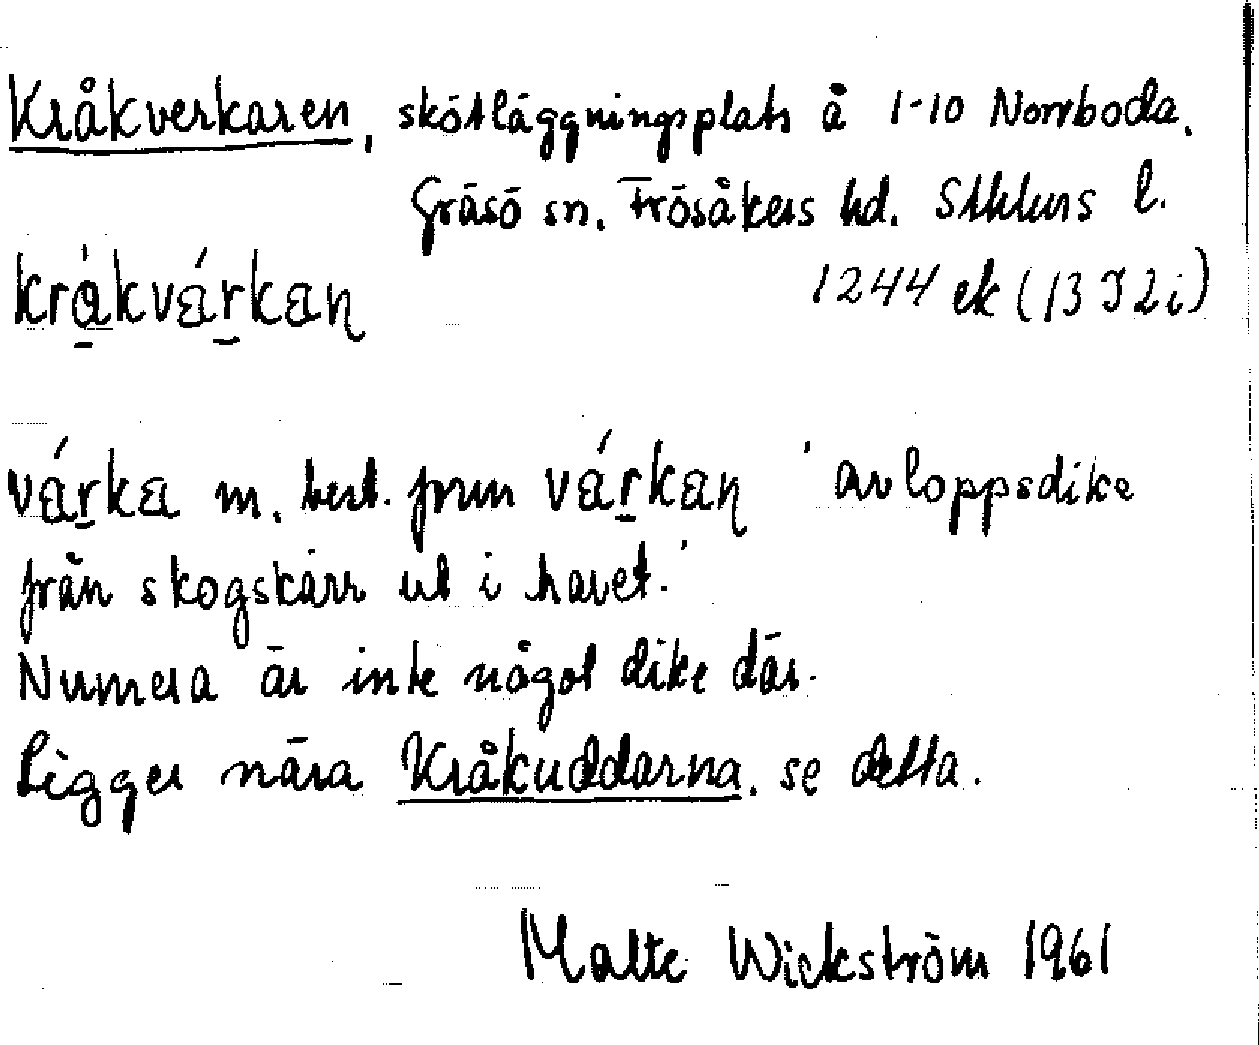 Kråkverkaren, skötläggningsplats å 1-10 Norrboda.
Gräsö sn. Frösåkers hd. Sthlms l.
kråkvárkan
1244 ek (13 I 2 i)
várka m. best. form várkan 'avloppsdike
från skogskärr ut i havet.'
Numera är inte något dike där.
Ligger nära Kråkuddarna. se detta.
Malte Wickström 1961